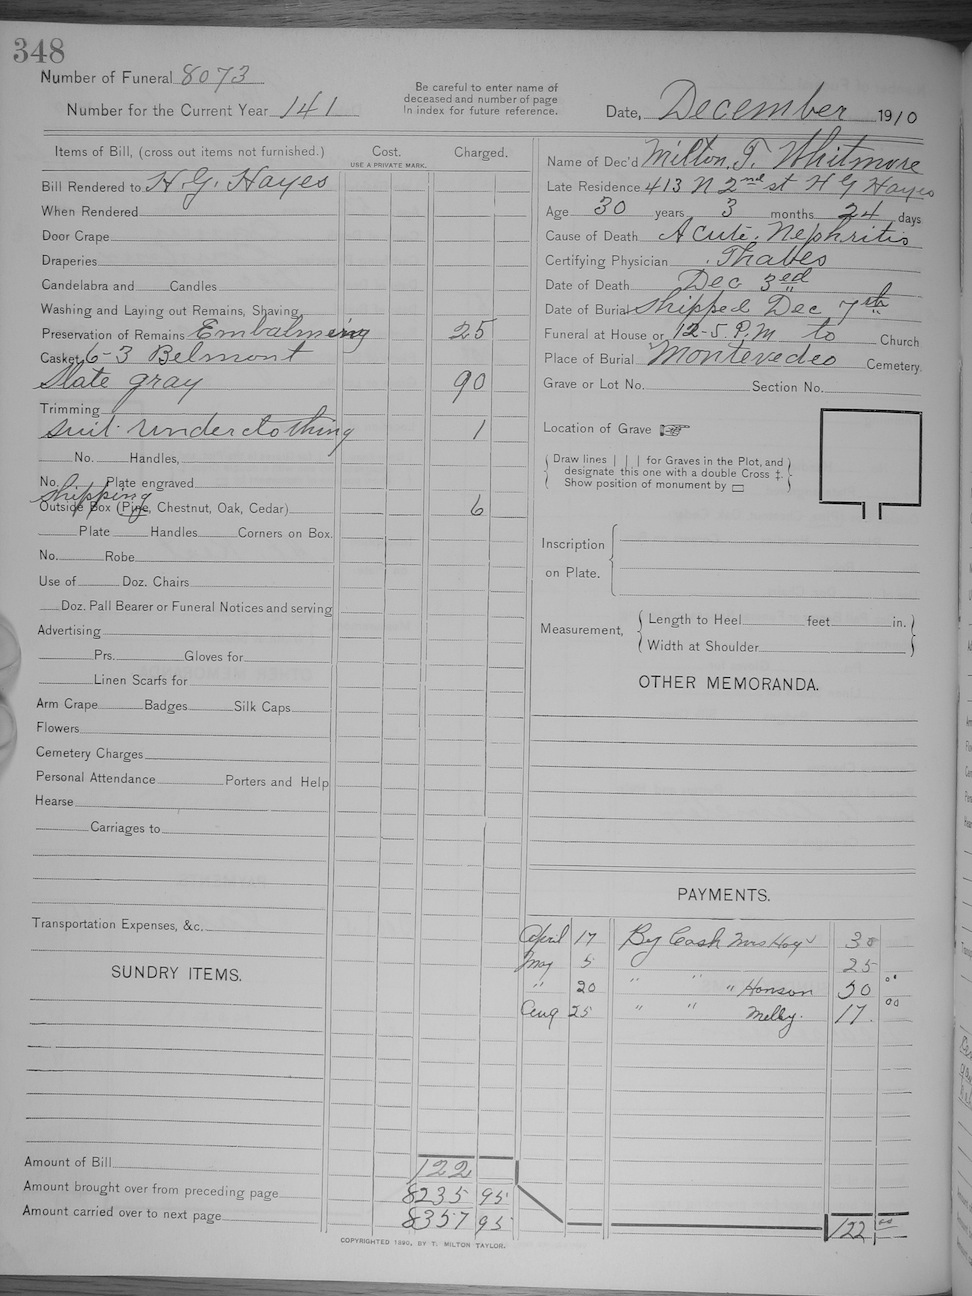 348
Number of Funeral 8073
Number for the Current Year 141
Be careful to enter name of
deceased and number of page
in index for future reference.
Date, December 1910
Items of Bill, (cross out items not furnished.) Cost. Charged.
USE A PRIVATE MARK.
Bill Rendered to H G. Hayes
When Rendered
Door Crape
Draperies
Candelabra and Candles
Washing and Laying out Remains, Shaving
Preservation of Remains Embalming 25
Casket 6-3 Belmont
Slate gray 90
Trimming
suit underclothing 1
No. Handles,
No. Plate engraved
shipping
Outside Box (Pine, Chestnut, Oak, Cedar) 6
Plate Handles Corners on Box.
No. Robe
Use of Doz. Chairs
Doz. Pall Bearer or Funeral Notices and serving
Advertising
Prs. Gloves for
Linen Scarfs for
Arm Crape Badges Silk Caps
Flowers
Cemetery Charges
Personal Attendance Porters and Help
Hearse
Carriages to
Transportation Expenses, &c.
SUNDRY ITEMS.
Amount of Bill 122
Amount brought over from preceding page 8235 95
Amount carried over to next page 8357 95
Name of Dec'd Milton. T. Whitmore
Late Residence 413 N 2nd st H G Hayes
Age 30 years 3 months 24 days
Cause of Death Acute. Nephritis
Certifying Physician Thabes
Date of Death Dec 3ed
Date of Burial shipped Dec 7th
Funeral at House or 12-5 P.M to Church
Place of Burial Montevedeo Cemetery.
Grave or Lot No. Section No.
Location of Grave ☞
Draw lines | | | for Graves in the Plot, and
designate this one with a double Cross ‡.
Show position of monument by ▭
Inscription
on Plate.
Measurement, Length to Heel feet in.
Width at Shoulder
OTHER MEMORANDA.
PAYMENTS.
April 17 By Cash Mrs Hoy 30
May 5 25
" 20 " " " Hanson 50 00
Aug 25 " " Melby. 17. 00
122 00
COPYRIGHTED 1890, BY T. MILTON TAYLOR.